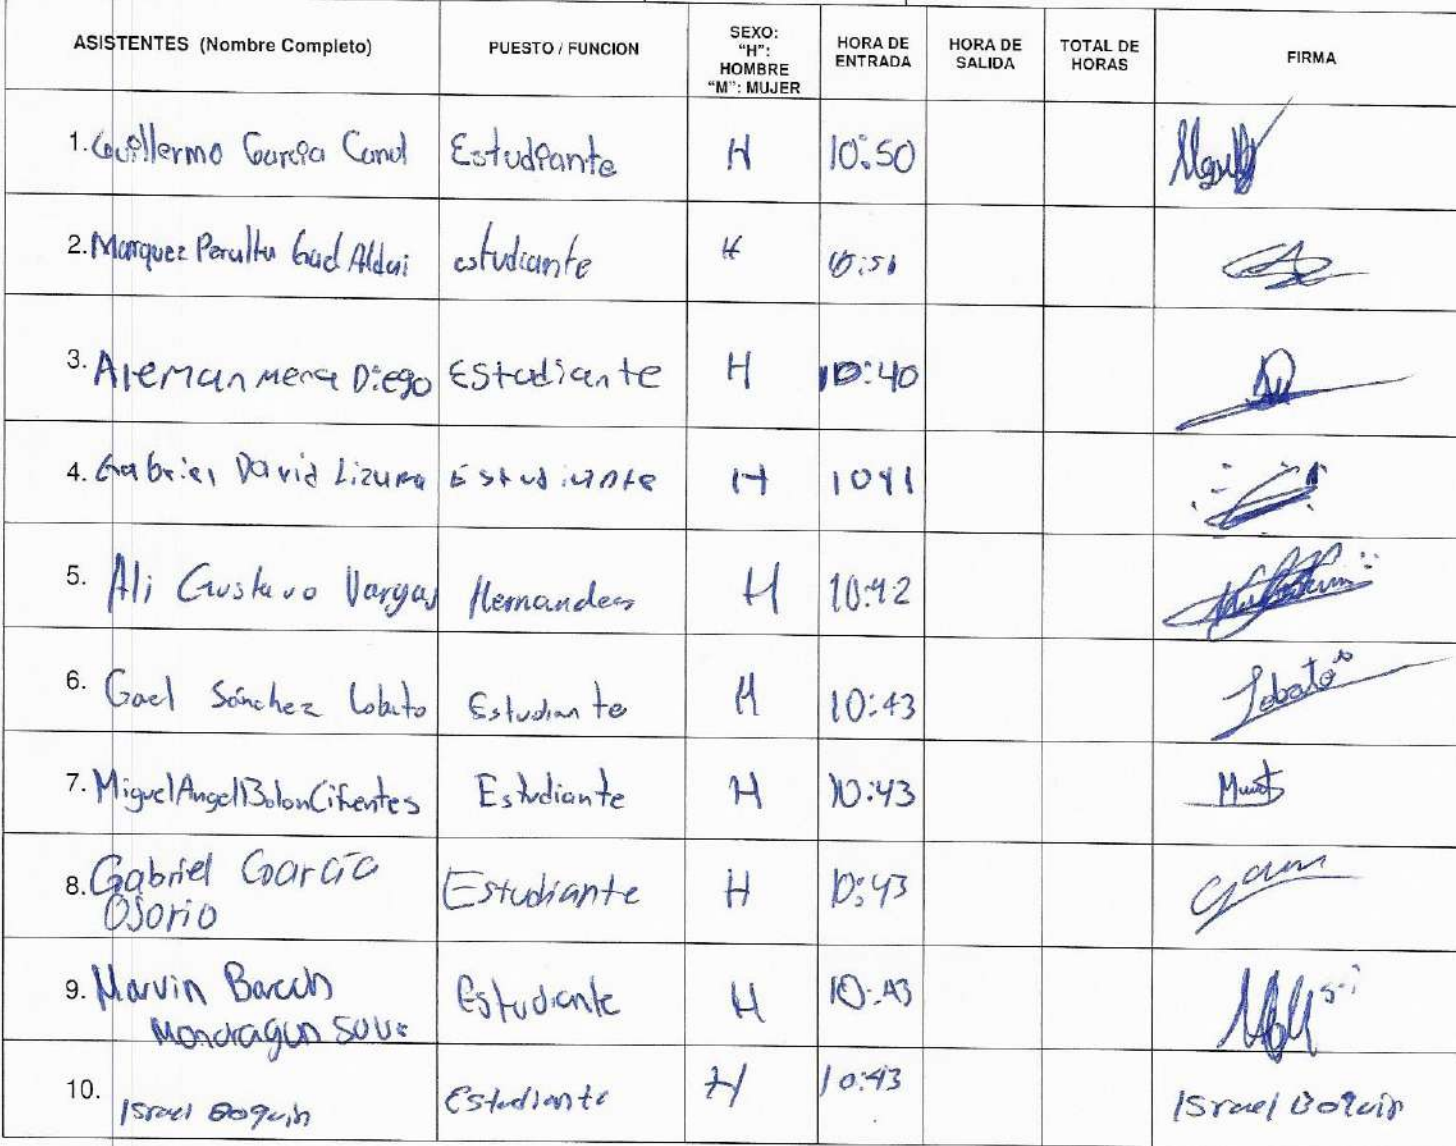 ASISTENTES (Nombre Completo) PUESTO / FUNCION SEXO: "H": HOMBRE "M": MUJER HORA DE ENTRADA HORA DE SALIDA TOTAL DE HORAS FIRMA
1. Guillermo García Canul Estudiante H 10:50
2. Marquez Peralta Gad Aldai estudiante H 10:51
3. Aleman Mena Diego Estudiante H 10:40
4. Gabriel David Lizama Estudiante H 1041
5. Ali Gustavo Vargas Hernandez H 10:42
6. Gael Sánchez Lobato Estudiante H 10:43 Lobato
7. Miguel Angel Bolon Cifuentes Estudiante H 10:43
8. Gabriel García Estudiante H 10:43
Osorio
9. Marvin Estudiante H 10:43
Mondragon
10. Israel Bolquin Estudiante H 10:43 Israel Bolquin